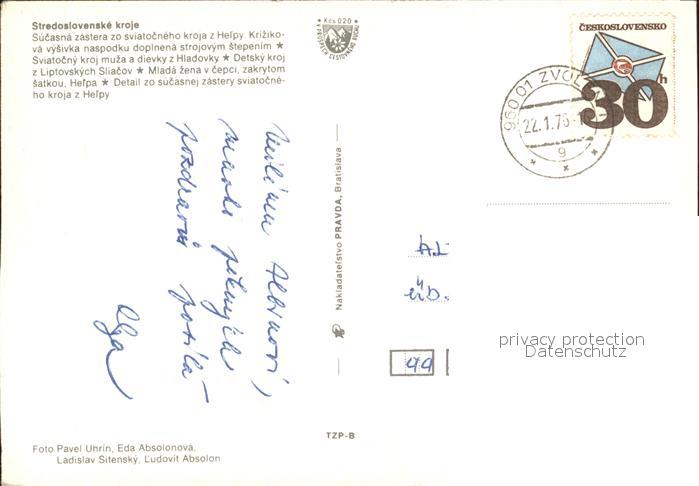 Stredoslovenské kroje
Súčasná zástera zo sviatočného kroja z Heľpy. Krížiko-
vá výšivka naspodku doplnená strojovým štepením ★
Sviatočný kroj muža a dievky z Hladovky ★ Detský kroj
z Liptovských Sliačov ★ Mladá žena v čepci, zakrytom
šatkou, Heľpa ★ Detail zo súčasnej zástery sviatočné-
ho kroja z Heľpy
Kčs 0,20
ČESKOSLOVENSKO
30h
960 01 ZVOLEN
22.1.75
9
Albínovi,
pekných
posiela
Olga
Nakladateľstvo PRAVDA, Bratislava
44
privacy protection
Datenschutz
TZP-B
Foto Pavel Uhrin, Eda Absolonová,
Ladislav Sitenský, Ľudovít Absolon